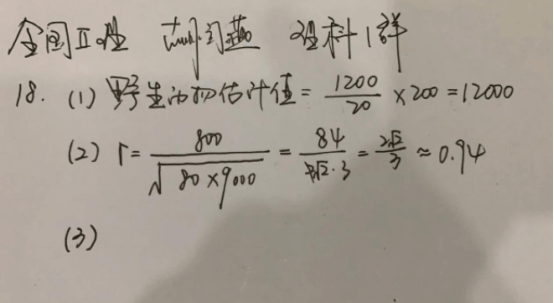 全国II卷 理科1群
18. (1) 野生动物估计值 = 1200/20 × 200 = 12000
(2) r = 800/√(80×9000) = 84/(9√2·3) = 2√2/3 ≈ 0.94
(3)